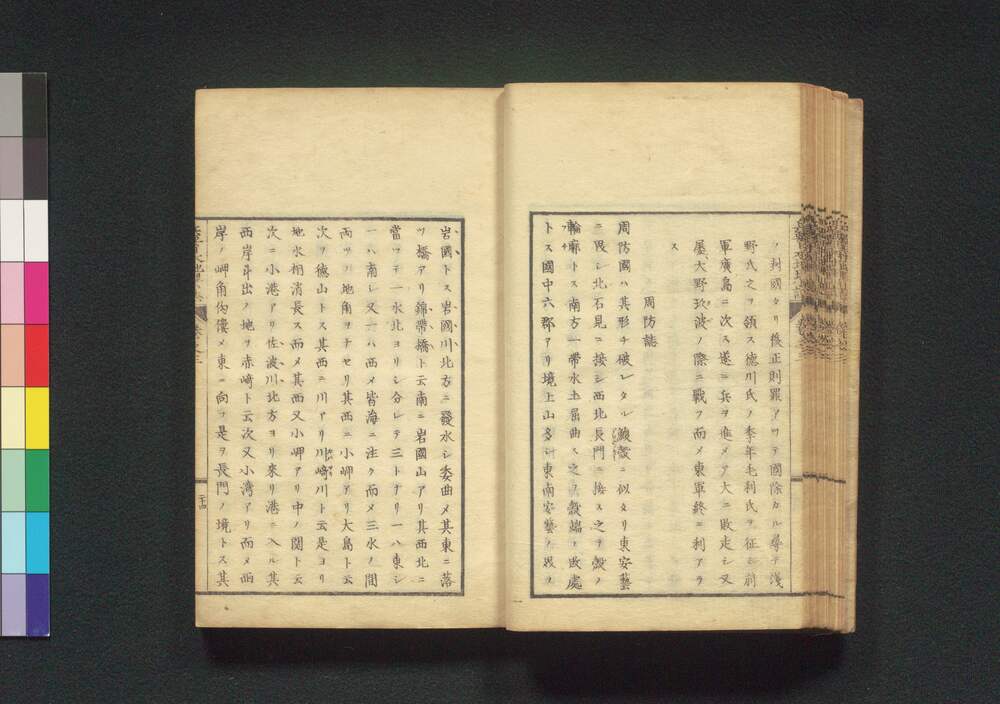 ノ封國タリ後正則罪アツテ國除カル尋テ淺
野氏之ヲ領ス徳川氏ノ季年毛利氏ヲ征シ前
軍廣島ニ次ス遂ニ兵ヲ進メテ大ニ敗走シ又
屋大野玖波ノ際ニ戰フ而メ東軍終ニ利アラ
ス
周防誌
周防國ハ其形チ破レタル鰒殻ニ似タリ東安藝
ニ界シ北石見ニ接シ西北長門ニ接ス之ヲ殻ノ
輪廓トス南方一帶水土屈曲ス之ヲ殻端ノ敗處
トス國中六郡アリ境上山多シ東南安藝ノ界ヲ
岩國トス岩國川北方ニ發水シ委曲メ其東ニ落
ツ橋アリ錦帶橋ト云南ニ岩國山アリ其西北ニ
當ツテ一水北ヨリシ分レテ三トナリ一ハ東シ
一ハ南シ又一ハ西メ皆海ニ注ク而メ三水ノ間
兩ツノ地角ヲナセリ其西ニ小岬アリ大島ト云
次ヲ徳山トス其西ニ川アリ川﨑川ト云是ヨリ
地水相消長ス而メ其西又小岬アリ中ノ関ト云
次ニ小港アリ佐波川北方ヨリ來リ港ニ入ル其
西岸斗出ノ地ヲ赤﨑ト云次又小湾アリ而メ西
岸ノ岬角傴僂メ東ニ向フ是ヲ長門ノ境トス其
卷之三
二十四